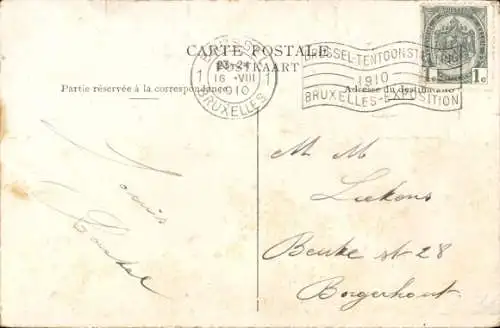 CARTE POSTALE
POSTKAART
Partie réservée à la correspondance
Adresse du destinataire
BRUSSEL
1
23-24
16 VIII
1910
BRUXELLES
BRUSSEL-TENTOONST
1910
BRUXELLES-EXPOSITION
1c 1c
M M
Luekens
Beuke st 28
Borgerhout
Louis